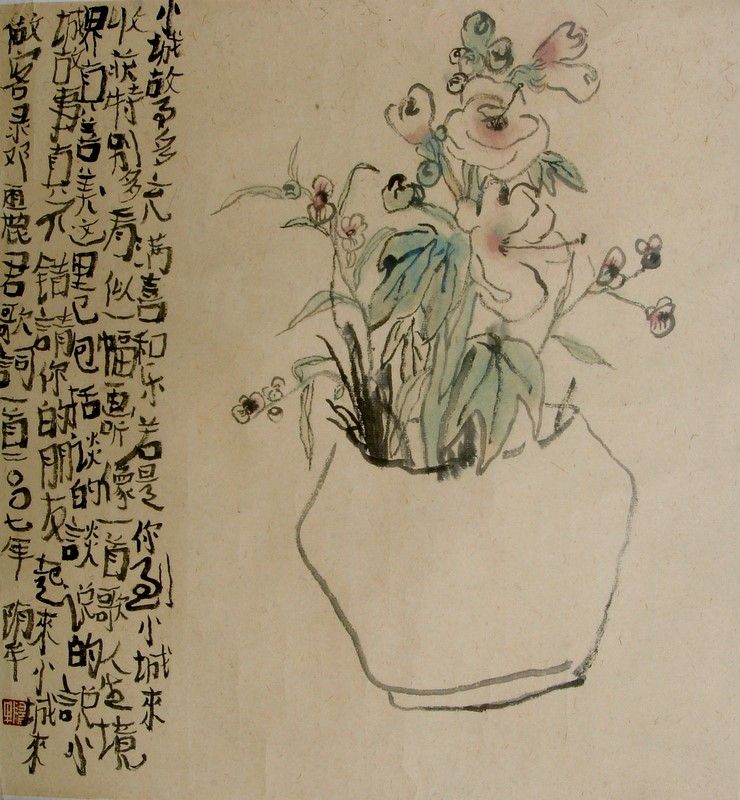 小城故事多充满喜和乐若是你到小城來
收获特别多看似一幅画听像一首歌人生境
界真善美这里已包括谈的談说的説小
城故事真不错請你的朋友一起來小城來
做客录邓麗君歌詞一首二〇〇七年